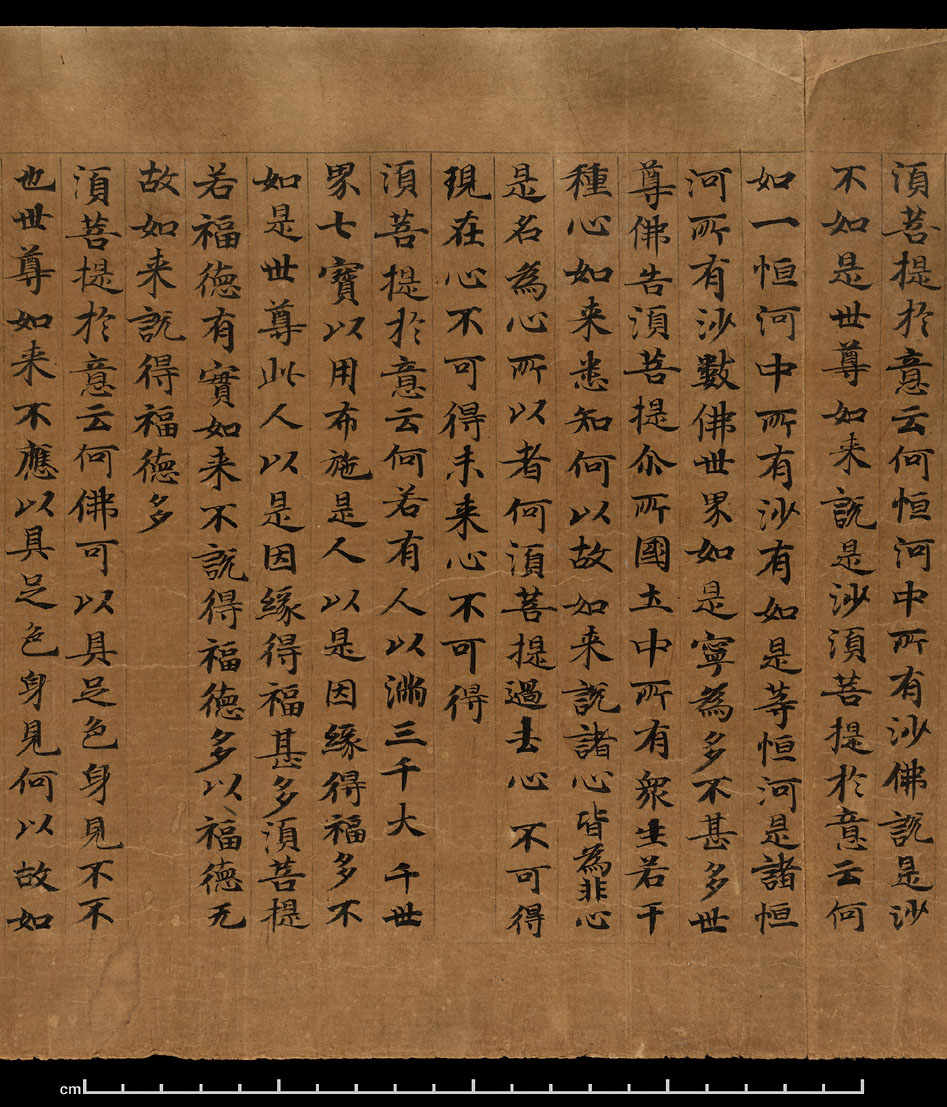 湏菩提扵意云何恒河中所有沙佛說是沙
不如是世尊如来說是沙湏菩提扵意云何
如一恒河中所有沙有如是等恒河是諸恒
河所有沙數佛世界如是寧為多不甚多世
尊佛告湏菩提尒所國土中所有衆生若干
種心如来悉知何以故如来說諸心皆為非心
是名為心所以者何湏菩提過去心不可得
現在心不可得未来心不可得
湏菩提扵意云何若有人以滿三千大千世
界七寶以用布施是人以是因緣得福多不
如是世尊此人以是因緣得福甚多湏菩提
若福德有實如来不說得福德多以福德无
故如来說得福德多
湏菩提扵意云何佛可以具足色身見不不
也世尊如来不應以具足色身見何以故如
cm